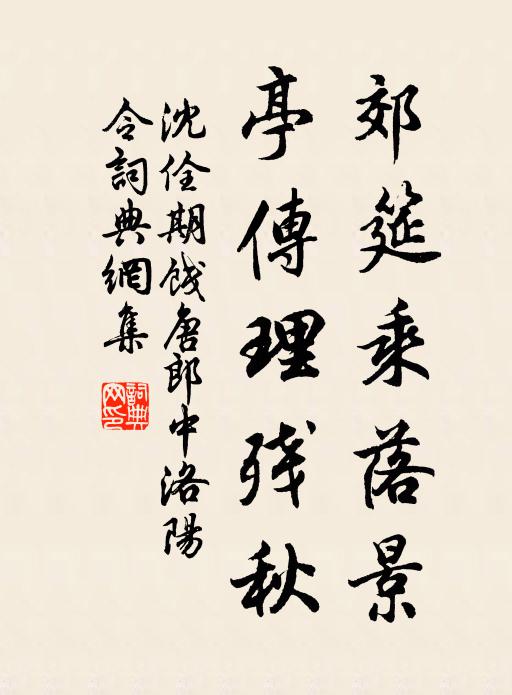 郊筵乘落景
亭傳理殘秋
沈佺期餞唐郎中洛陽
令詞典網集
詞典
網印